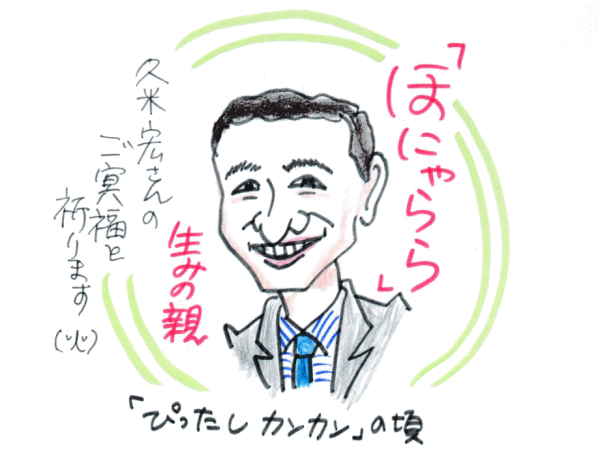 「ほにゃらら」
生みの親
久米宏さんの
ご冥福を
祈ります
「ぴったし カンカン」の頃